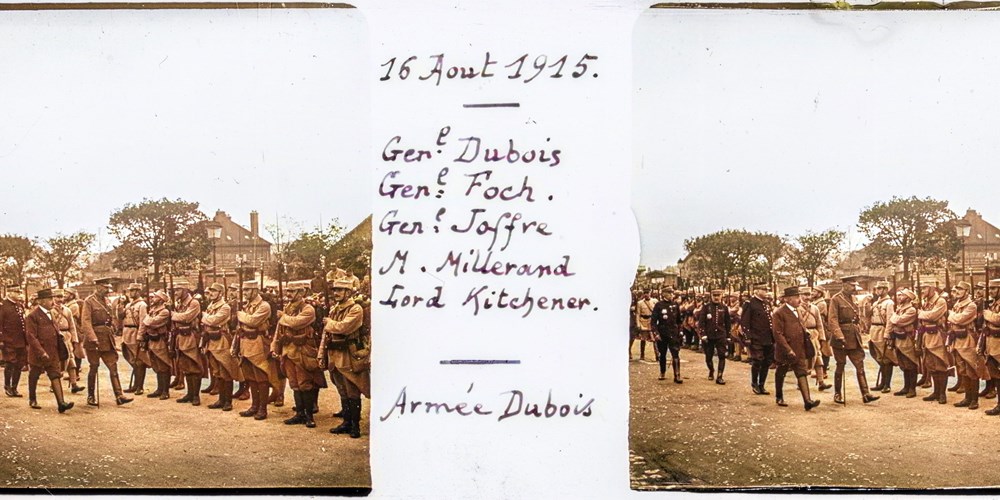 16 Aout 1915.
Genˡ Dubois
Genˡ Foch.
Genˡ Joffre
M. Millerand
Lord Kitchener.
Armée Dubois